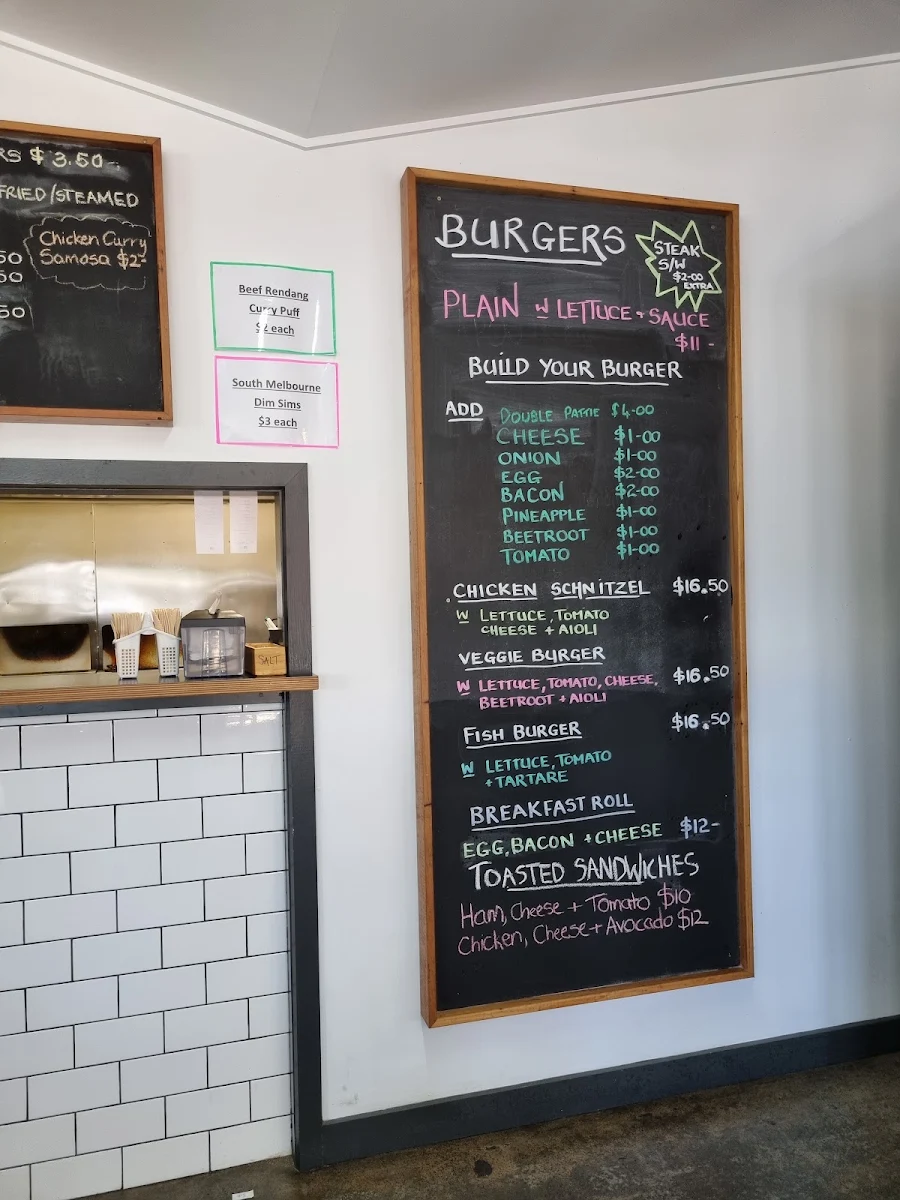 RS $3.50-
FRIED/STEAMED
Chicken Curry
Samosa $2-
50
50
50
Beef Rendang
Curry Puff
$2 each
South Melbourne
Dim Sims
$3 each
SALT
BURGERS
STEAK
S/W
$2-00
EXTRA
PLAIN W LETTUCE + SAUCE
$11 -
BUILD YOUR BURGER
ADD DOUBLE PATTIE $4-00
CHEESE $1-00
ONION $1-00
EGG $2-00
BACON $2-00
PINEAPPLE $1-00
BEETROOT $1-00
TOMATO $1-00
CHICKEN SCHNITZEL $16.50
W LETTUCE, TOMATO
CHEESE + AIOLI
VEGGIE BURGER
W LETTUCE, TOMATO, CHEESE, $16.50
BEETROOT + AIOLI
FISH BURGER $16.50
W LETTUCE, TOMATO
+ TARTARE
BREAKFAST ROLL
EGG, BACON + CHEESE $12-
TOASTED SANDWICHES
Ham, Cheese + Tomato $10
Chicken, Cheese + Avocado $12